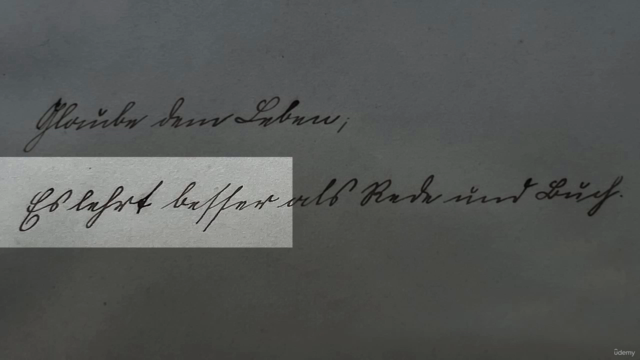 Glaube dem Leben;
Es lehrt besser als Rede und Buch.
ûdemy